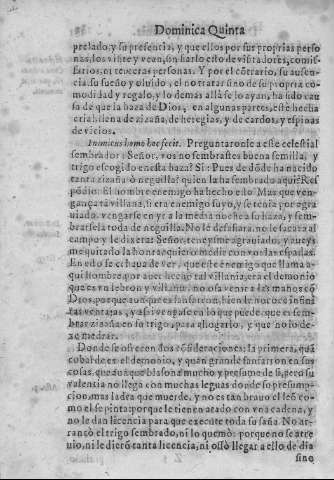 Dominica Quinta
prelado, y su presencia, y que ellos por sus proprias perso
nas, los visite y vean, son harlo esto de visitadores, comis-
sarios, ni terceras personas. Y por el contrario, su ausen-
cia, su sueño y oluido, el no tratar sino de su propria co-
modidad y regalo, y lo demas allà se lo ayan, ha sido cau
sa de que la haza de Dios, en algunas partes, este hecha
erial, llena de zizaña, de heregias, y de cardos, y espinas
de vicios.
Inimicus homo hoc fecit. Preguntaronle a este celestial
sembrador: Señor, vos no sembrastes buena semilla, y
trigo escogido en esta haza? Si: Pues de dõde ha nacido
tanta zizaña ò neguilla? quien la ha sembrado aqui? Res
põdio: El hombre enemigo ha hecho esto. Mas que ven-
gança tã villana, si era enemigo suyo, y se tenia por agra
uiado, vengarse en yr a la media noche a su haza, y sem-
brarsela toda de neguilla, No le desafiara, no le sacara al
campo y le dixera: Señor, teneysme agrauiado, y aueys
me quitado la honra, quiero me dè con vos las espadas.
En esso se echaua de ver, que este enemigo que llama a-
qui hombre, por auer hecho tal villania, era el demonio
que es vn lebron y villano: no osa venir a las manos cõ
Dios, porque aunque es fanfarron, bien le conoce infini
tas ventajas, y assi vengase en lo que puede, que es sem-
brar zizaña en su trigo, para ahogarlo, y que no lo de-
xe medrar.
Donde se ofrecen dos cõsideraciones: la primera, quã
cobarde es el demonio, y quan grande fanfarron en sus
cosas, que aunque blasona mucho y presume de si, pero su
valentia no llega con muchas leguas donde su presump-
cion, mas ladra que muerde, y no es tan brauo el leõ co-
mo el se pinta: porque le tienen atado con vna cadena, y
no le dan licencia para que execute toda su saña. No ar-
rancò el trigo sembrado, ni lo quemò: porque no se atre
uio, ni le dierõ tanta licencia, ni ossò llegar a ello de dia
sino